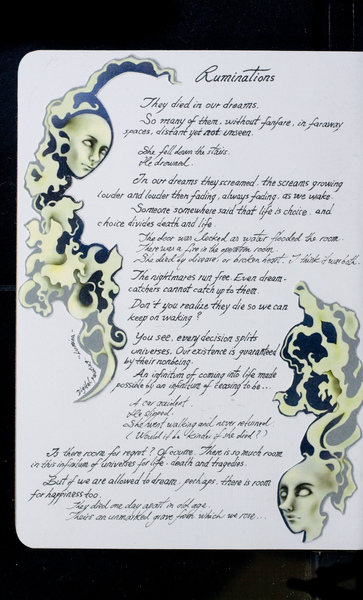 Ruminations
They died in our dreams.
So many of them, without fanfare, in faraway
spaces, distant yet not unseen.
She fell down the stairs.
He drowned.
In our dreams they screamed, the screams growing
louder and louder then fading, always fading, as we wake.
Someone somewhere said that life is choice, and
choice divides death and life.
The door was locked as water flooded the room.
There was a fire in the operation room.
She died by disease, or broken heart, I think it was both.
The nightmares run free. Even dream-
catchers cannot catch up to them.
Don't you realize they die so we can
keep on waking?
You see, every decision splits
universes. Our existence is guaranteed
by their nonbeing.
An infinitum of coming into life made
possible by an infinitum of ceasing to be...
A car accident.
He slipped.
She went walking and never returned.
(Would it be kinder if she died?)
Is there room for regret? Of course. There is so much room
in this infinitum of universes for life, death and tragedies.
But if we are allowed to dream, perhaps, there is room
for happiness too.
They died one day apart in old age.
Theirs an unmarked grave from which we rose...